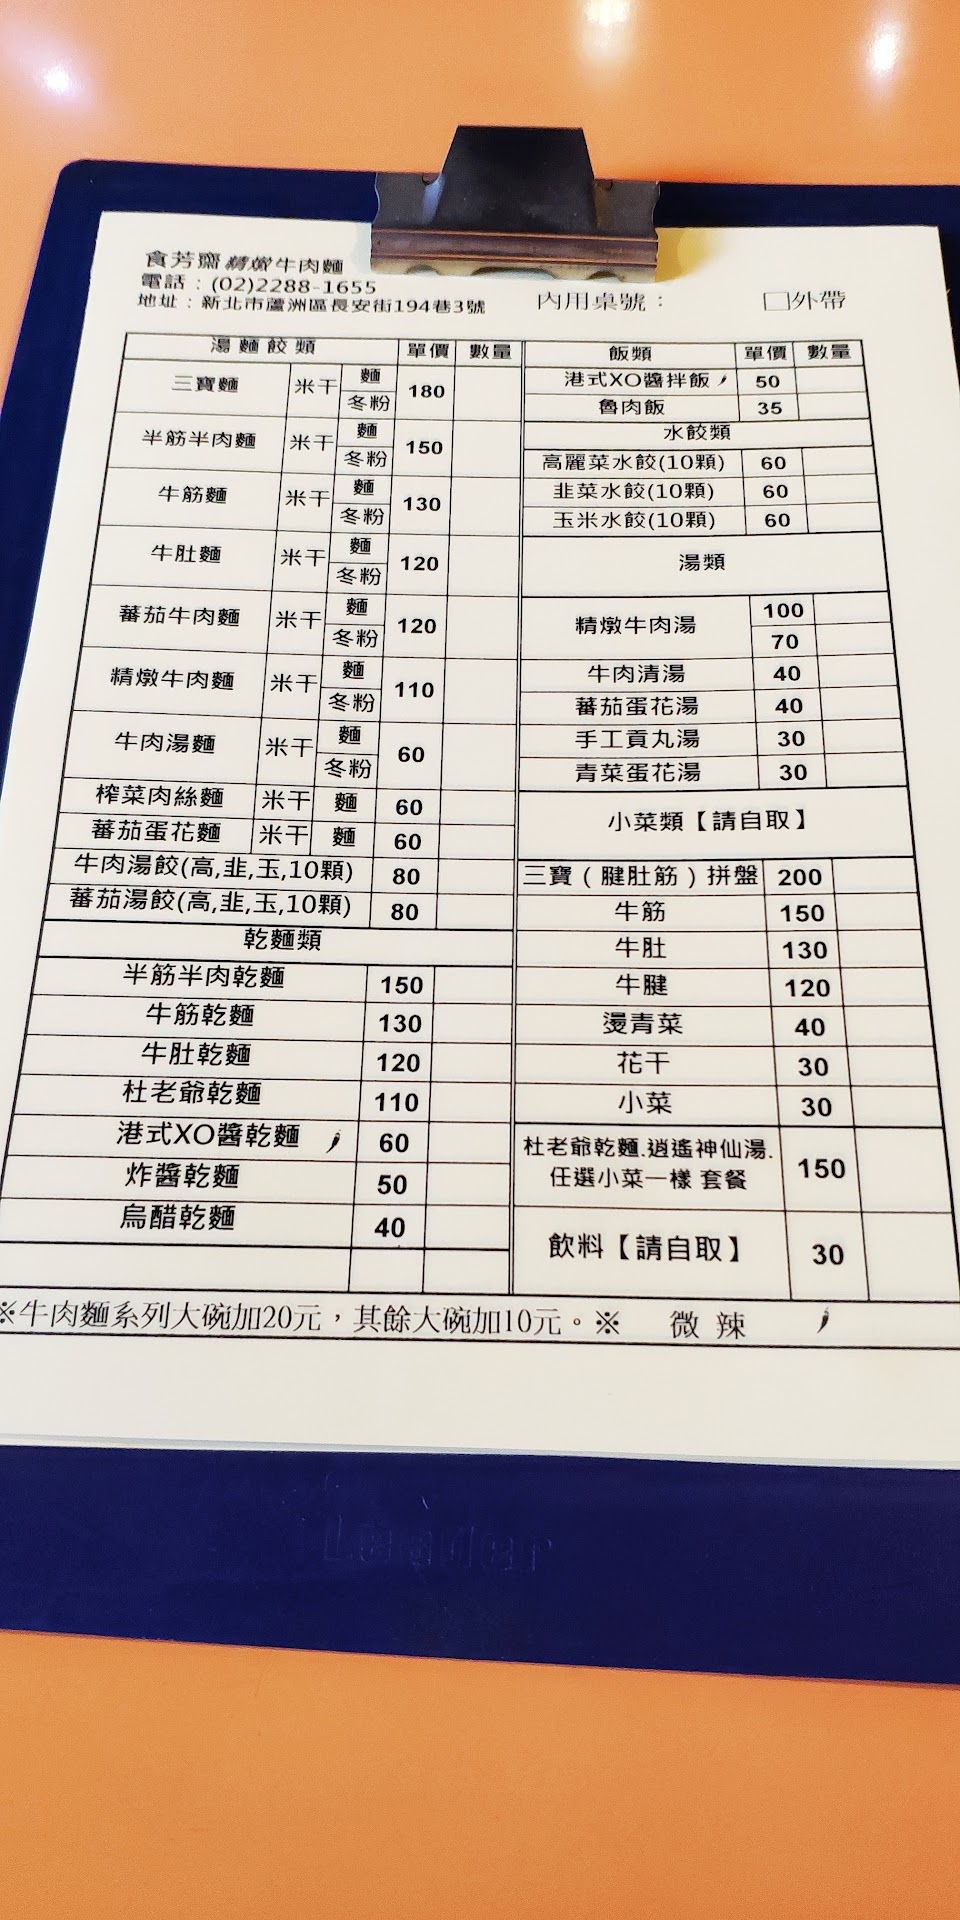 食芳齋精燉牛肉麵
電話：(02)2288-1655
地址：新北市蘆洲區長安街194巷3號
內用桌號：
□外帶
湯麵餃類 單價 數量
三寶麵 米干 麵 冬粉 180
半筋半肉麵 米干 麵 冬粉 150
牛筋麵 米干 麵 冬粉 130
牛肚麵 米干 麵 冬粉 120
蕃茄牛肉麵 米干 麵 冬粉 120
精燉牛肉麵 米干 麵 冬粉 110
牛肉湯麵 米干 麵 冬粉 60
榨菜肉絲麵 米干 麵 60
蕃茄蛋花麵 米干 麵 60
牛肉湯餃(高,韭,玉,10顆) 80
蕃茄湯餃(高,韭,玉,10顆) 80
乾麵類
半筋半肉乾麵 150
牛筋乾麵 130
牛肚乾麵 120
杜老爺乾麵 110
港式XO醬乾麵 60
炸醬乾麵 50
烏醋乾麵 40
飯類 單價 數量
港式XO醬拌飯 50
魯肉飯 35
水餃類
高麗菜水餃(10顆) 60
韭菜水餃(10顆) 60
玉米水餃(10顆) 60
湯類
精燉牛肉湯 100 70
牛肉清湯 40
蕃茄蛋花湯 40
手工貢丸湯 30
青菜蛋花湯 30
小菜類【請自取】
三寶（腱肚筋）拼盤 200
牛筋 150
牛肚 130
牛腱 120
燙青菜 40
花干 30
小菜 30
杜老爺乾麵.逍遙神仙湯.
任選小菜一樣 套餐 150
飲料【請自取】 30
※牛肉麵系列大碗加20元，其餘大碗加10元。※ 微辣
Leader